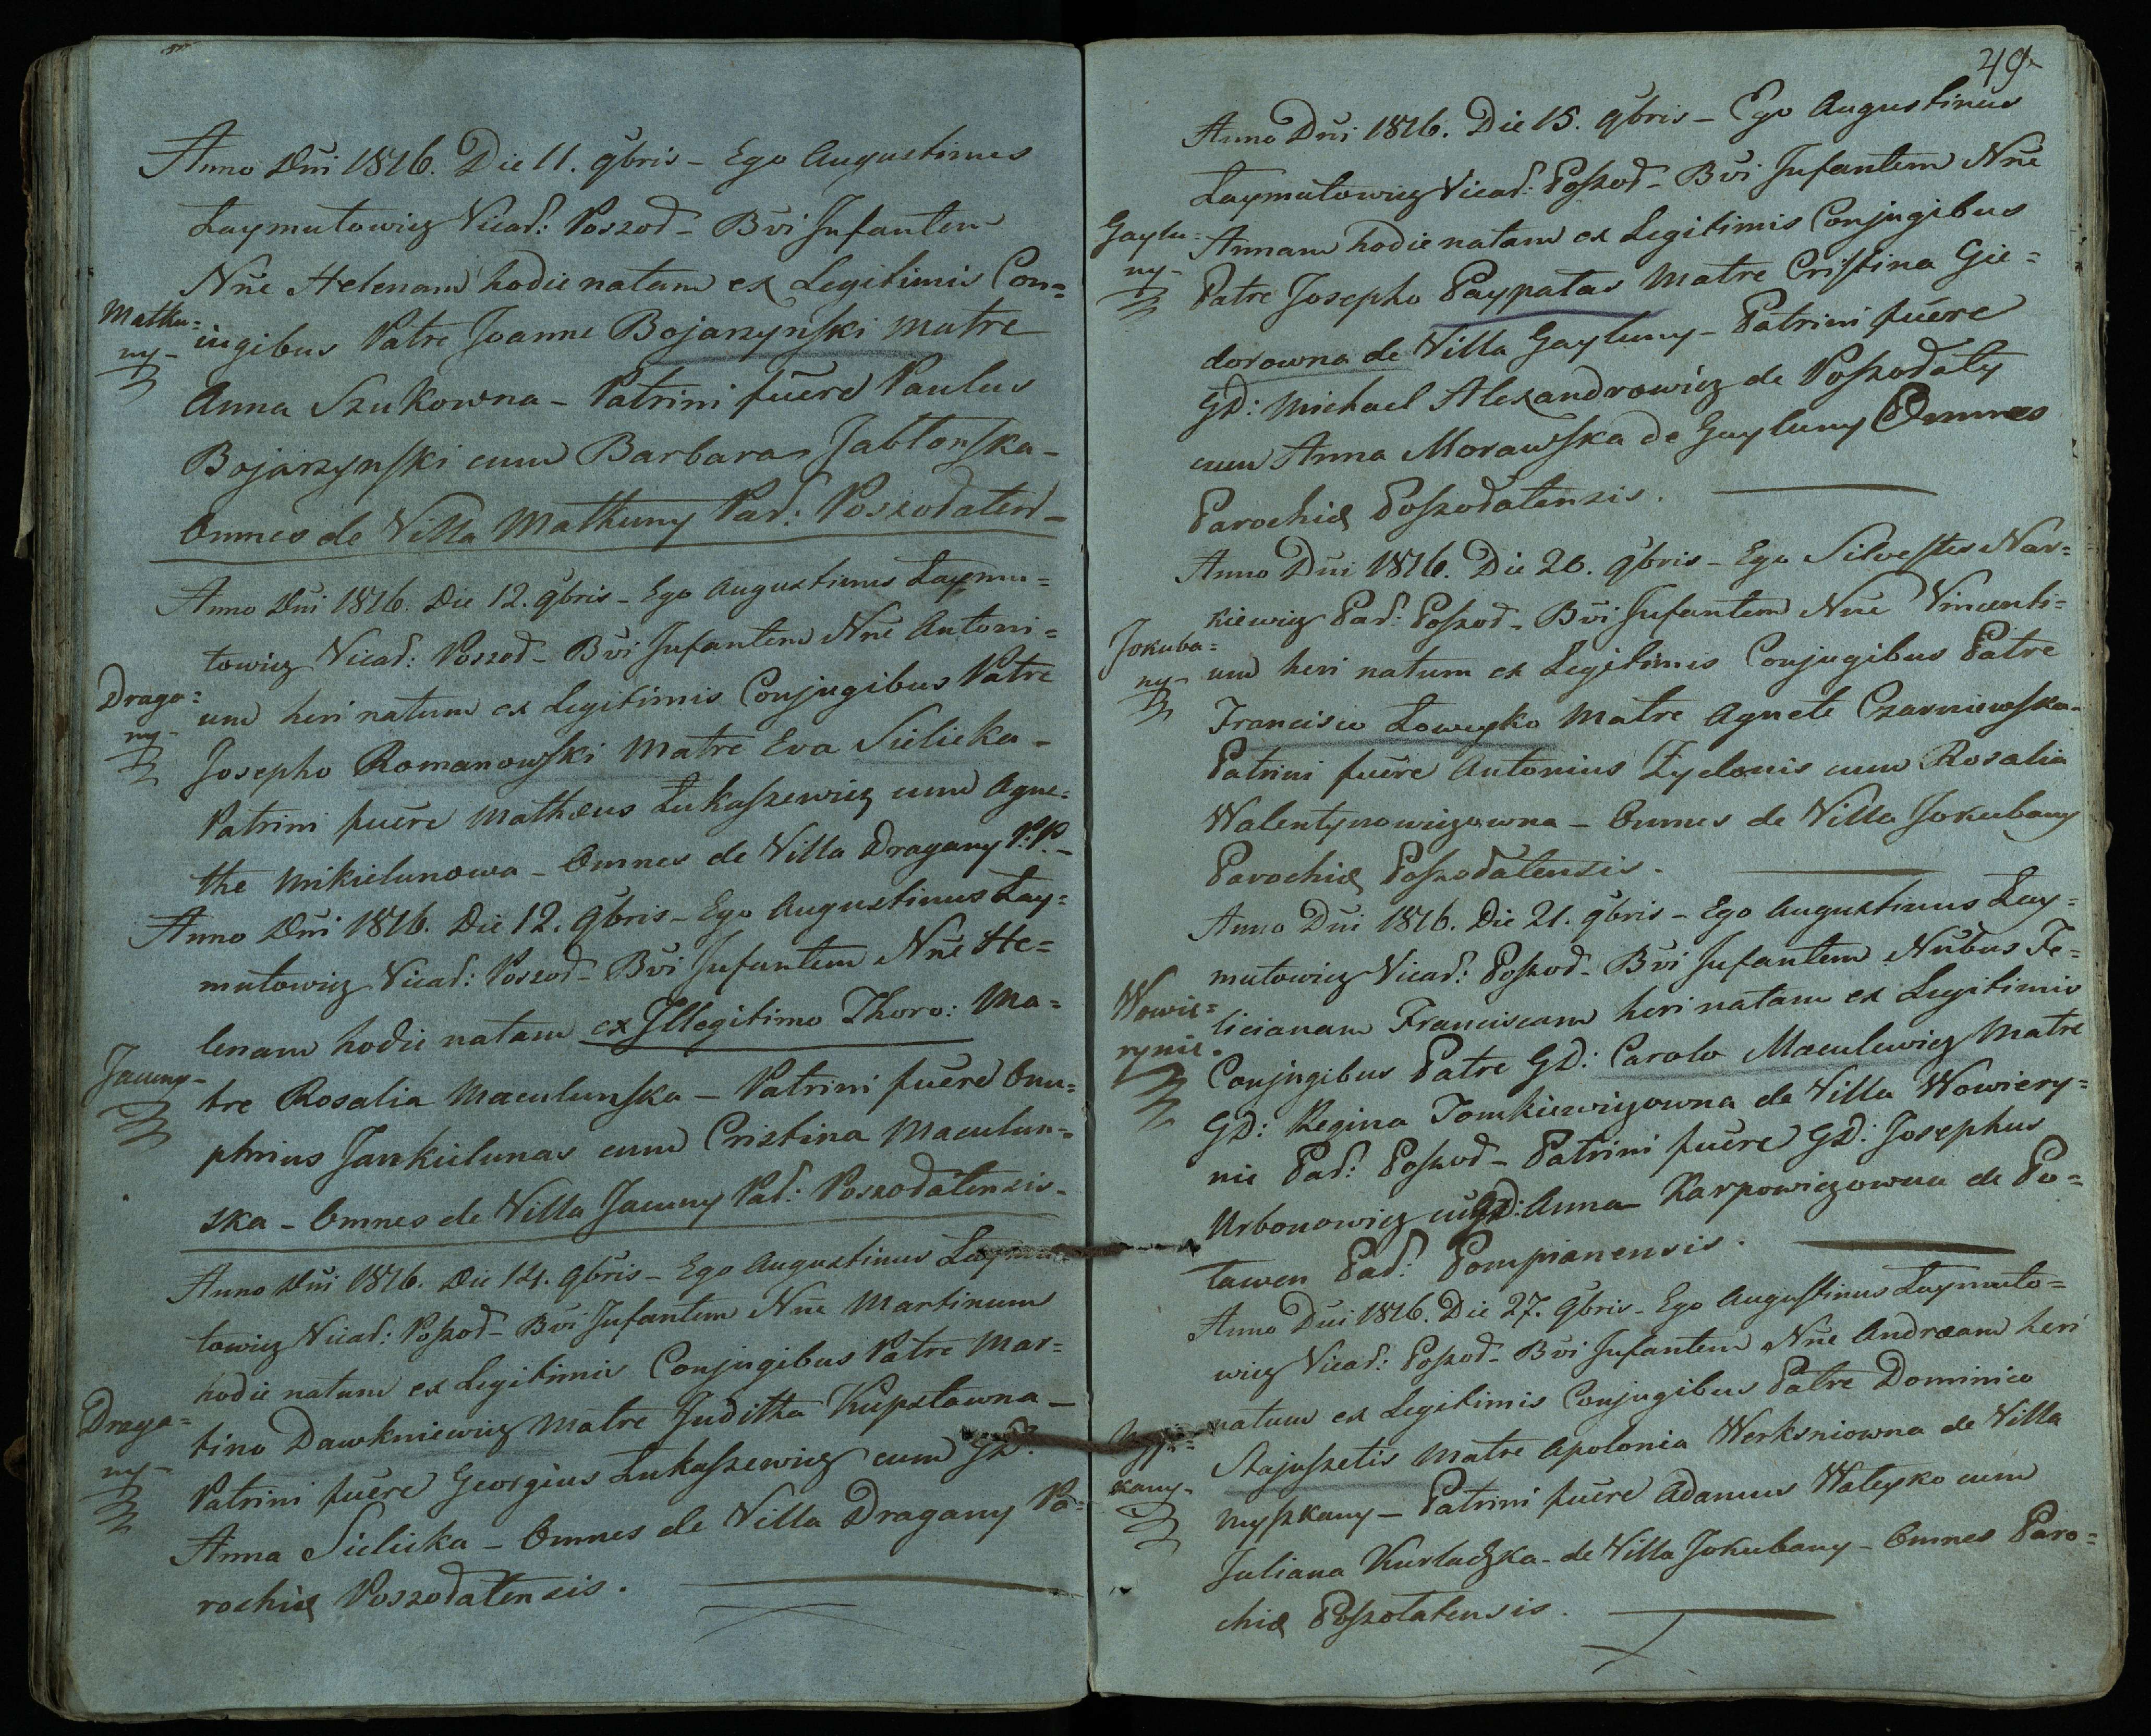 Anno Dni 1816. Die 11. 9bris – Ego Augustinus
Laymutowicz Vicar: Poszod – Bvi Infantem
Nne Helenam hodie natam ex Legitimis Con=
Mathu=
ny –
iugibus Patre Joanne Bojarzynski Matre
Anna Szukowna – Patrini fuere Paulus
Bojarzynski cum Barbara Jablonska –
Omnes de Villa Mathuny Par: Poszodaten –
Anno Dni 1816. Die 12. 9bris – Ego Augustinus Laymu=
towicz Vicar: Poszod – Bvi Infantem Nne Antoni=
Draga=
ny –
um heri natum ex Legitimis Conjugibus Patre
Josepho Romanowski Matre Eva Sielicka –
Patrini fuere Mathæus Lukaszewicz cum Agne=
the Mikielunowa – Omnes de Villa Dragany P: P. –
Anno Dni 1816. Die 12. 9bris – Ego Augustinus Lay=
mutowicz Vicar: Poszod – Bvi Infantem Nne He=
lenam hodie natam ex Illegitimo Thoro: Ma=
Jacuny –
tre Rosalia Maculunska – Patrini fuere Onu=
phrius Jankielunas cum Cristina Maculun=
ska – Omnes de Villa Jacuny Par: Poszodatensis –
Anno Dni 1816. Die 14. 9bris – Ego Augustinus Laymu
towicz Vicar: Poszod – Bvi Infantem Nne Martinum
hodie natum ex Legitimis Conjugibus Patre Mar=
Draga=
ny –
tino Dawkniewicz Matre Juditha Kupstowna –
Patrini fuere Georgius Lukaszewicz cum GD:
Anna Sielicka – Omnes de Villa Dragany Pa=
rochiæ Poszodatensis.
49
Anno Dni 1816. Die 15. 9bris – Ego Augustinus
Laymutowicz Vicar: Poszod – Bvi Infantem Nne
Gaylu=
ny –
Annam hodie natam ex Legitimis Conjugibus
Patre Josepho Paypatas Matre Cristina Gie=
dorowna de Villa Gayluny – Patrini fuere
GD: Michael Alexandrowicz de Poszodaty
cum Anna Morawska de Gayluny Omnes
Parochiæ Poszodatensis.
Anno Dni 1816. Die 20. 9bris – Ego Silvester Nar=
kiewicz Par: Poszod – Bvi Infantem Nne Vincenti=
Jokuba=
ny –
um heri natum ex Legitimis Conjugibus Patre
Francisco Lowcyko Matre Agnete Czarniewska –
Patrini fuere Antonius Zydonis cum Rosalia
Walentynowiczowna – Omnes de Villa Jokubany
Parochiæ Poszodatensis.
Anno Dni 1816. Die 21. 9bris – Ego Augustinus Lay=
mutowicz Vicar: Poszod – Bvi Infantem Nnibus Fe=
Wowie=
rynie.
licianam Franciscam heri natam ex Legitimis
Conjugibus Patre GD: Carolo Maculewicz Matre
GD: Regina Tomkiewiczowna de Villa Wowiery=
nie Par: Poszod – Patrini fuere GD: Josephus
Urbonowicz cu GD: Anna Karpowiczowna de Po=
tawen Par: Pompianensis.
Anno Dni 1816. Die 27. 9bris – Ego Augustinus Laymuto=
wicz Vicar: Poszod – Bvi Infantem Nne Andræam heri
natum ex Legitimis Conjugibus Patre Dominico
kany –
Stajuszetis Matre Apolonia Werksniowna de Villa
Nyszkany – Patrini fuere Adamus Wateyko cum
Juliana Kurlaczka – de Villa Jokubany – Omnes Paro=
chiæ Poszotatensis.